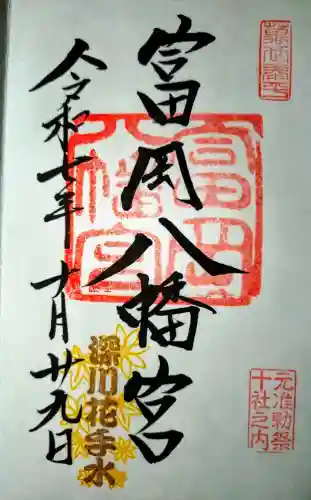 富岡八幡宮
令和七年十月廿九日
富岡
八幡宮
元准勅祭
十社之内
深川花手水